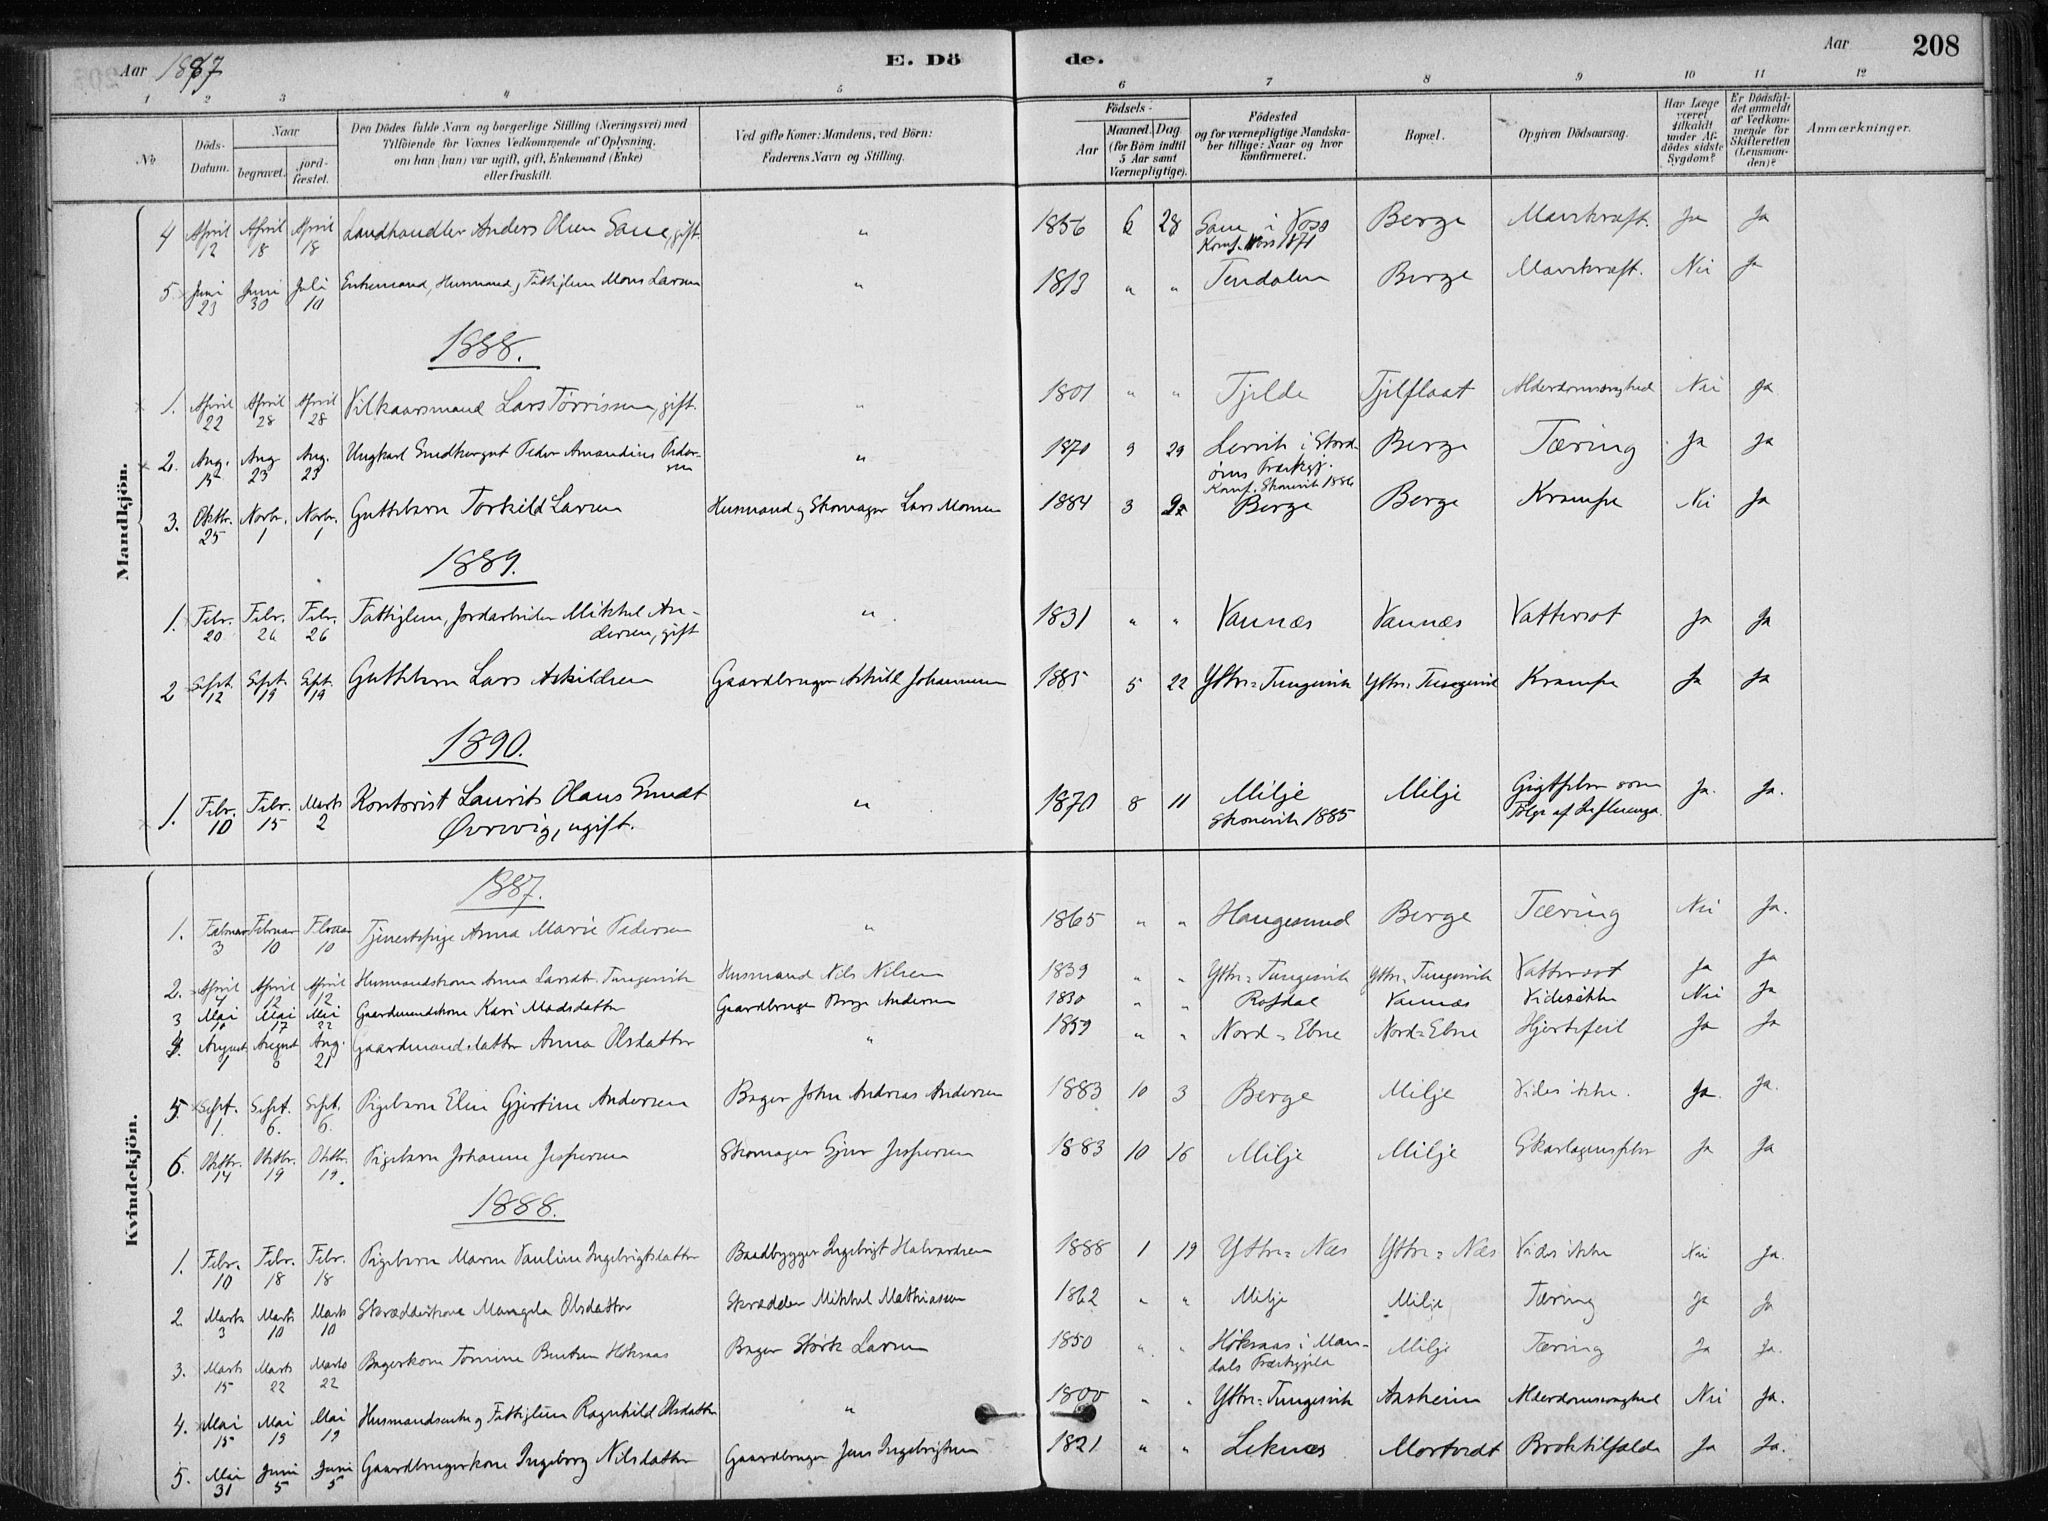 Aar 1887
E. Döde.
Aar
208
1 2 3 4 5 6 7 8 9 10 11 12
No
Döds-Datum.
Naar
begravet.
jordfæstet.
Den Dödes fulde Navn og borgerlige Stilling (Næringsvei) med Tilföiende for Voxnes Vedkommende af Oplysning, om han (hun) var ugift, gift, Enkemand (Enke) eller fraskilt.
Ved gifte Koner: Mandens, ved Börn: Faderens Navn og Stilling.
Födsels-
Aar
Maaned. Dag (for Börn indtil 5 Aar samt Værnepligtige).
Födested og for værnepligtige Mandskaber tillige: Naar og hvor konfirmeret.
Bopæl.
Opgiven Dödsaarsag.
Har Læge været tilkaldt under Afdödes sidste Sygdom?
Er Dödsfaldet anmeldt af Vedkommende for Skifteretten (Lensmanden)?
Anmærkninger.
Mandkjön.
4 April 12 April 18 April 18 Landhandler Anders Olsen Saue, gift. " 1856 6 28 Saue i Voss Konf. Voss 1871 Berge Mavekræft. Ja Ja
5. Juni 23 Juni 30 Juli 10 Enkemand, Husmand, Fattiglem Mons Larsen " 1813 " " Tendalen Berge Mavekræft. Nei Ja
1888.
1. April 22 April 28 April 28 Vilkaarsmand Lars Tørrissen, gift. " 1801 " " Tjilde Tjilflaat Alderdomssvaghed Nei Ja
2. Aug. 15 Aug 23 Aug. 23 Ungkarl Smedkergut Peder Amandius Pedersen " 1870 9 29 Lervik i Stordöens Præstegj. Konf. Skonevik 1886 Berge Tæring Ja Ja
3. Oktbr. 25 Novbr. 1 Novbr. 1 Guttebarn Torkild Larsen Husmand og Skomager Lars Monsen 1884 3 22 Berge Berge Krampe Nei Ja
1889.
1. Febr. 20 Febr. 26 Febr. 26 Fattiglem, Jordarbeider Mikkel Andersen, gift " 1831 " " Vannæs Vannæs Vattersot Ja Ja
2 Sept. 12 Sept. 19 Sept. 19 Guttebarn Lars Askildsen Gaardbruger Askild Johannesen 1885 5 22 Yttre=Tungesvik Yttre=Tungesvik Krampe Ja Ja
1890.
1. Febr. 10 Febr. 15 Marts 2 Kontorist Laurits Olaus Smedt Øvrevig, ugift. " 1870 8 11 Milje Skonevik 1885 Milje Gigtfeber som Følge af Influenza. Ja. Ja.
Kvindekjön.
1887.
1. Februar 3 Februar 10 Februar 10 Tjenestepige Anna Marie Pedersen " 1865 " " Haugesund Berge Tæring Nei Ja.
2. April 4 April 12 April 12 Husmandskone Anna Larsdtr. Tungesvik Husmand Nils Nilsen 1839 " " Yttre=Tungesvik Yttre=Tungesvik Vattersot Ja Ja
3 Mai 10 Mai 17 Mai 22 Gaardmandskone Kari Madsdatter Gaardbruger Andersen 1830 " " Rofdal Vannæs Vides ikke Nei Ja
4. August 1 August 8 Aug. 21 Gaardmandsdatter Anna Olsdatter " 1859 " " Nord=Ebne Nord=Ebne Hjertefeil Ja Ja
5. Sept. 1. Sept. 6. Sept. 6. Pigebarn Elen Gjertine Andersen Bager John Andreas Andersen 1883 10 3 Berge Milje Vides ikke. Ja. Ja.
6. Oktbr. 14 Oktbr. 19 Oktbr. 19. Pigebarn Johanne Jespersen Skomager Ejner Jespersen 1883 10 16 Milje Milje Skarlagensfeber Ja Ja
1888.
1. Febr. 10 Febr. 18 Febr. 18 Pigebarn Maren Pauline Ingebrigtsdatter Baadbygger Ingebrigt Halvardsen 1888 1 19 Yttre=Næs Yttre=Næs Vides ikke Nei Ja.
2. Marts 3 Marts 10 Marts 10 Skrædderkone Mangela Olsdatter Skrædder Mikkel Mathiassen 1862 " " Milje Milje Tæring Ja Ja
3. Marts 15 Marts 22 Marts 22 Bagerkone Tomine Berntsen Høksaas Bager Størk Larsen 1850 " " Høksaas i Mandals Præstegjeld Milje Tæring Ja Ja.
4. Mai 15 Mai 19 Mai 19 Husmandsenke og Fattiglem Ragnhild Olsdatter " 1800 " " Yttre=Tungesvik Aasheim Alderdomssvaghed Nei Ja.
5. Mai 31 Juni 5 Juni 5 Gaardbrugerkone Ingeborg Nilsdatter Gaardbruger Jens Ingebrigtsen 1821 " " Leknes Mortvedt Broktilfælde Ja Ja.